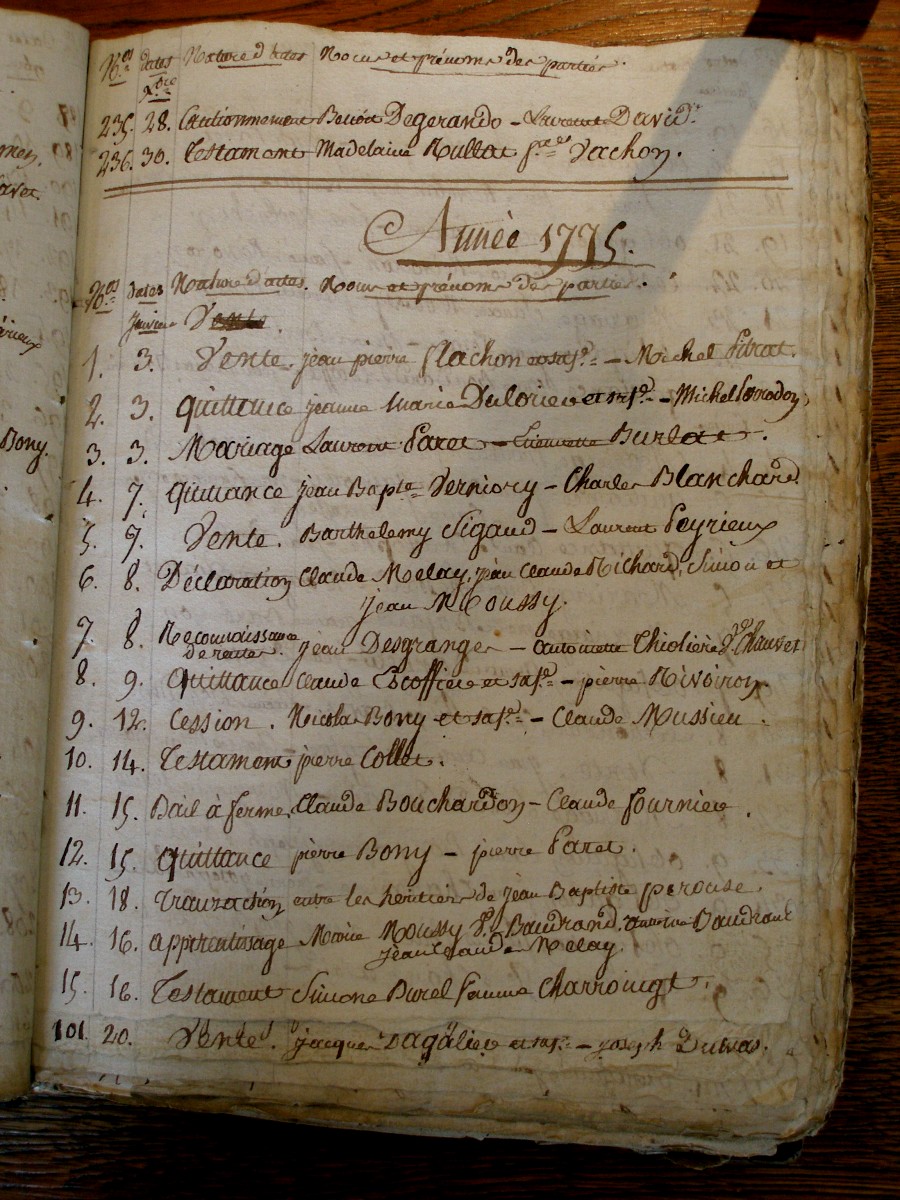 N.os dates Nature d'actes Noms et prénoms des parties.
xbre
235. 28. Cautionnement Benoit Degerando - Laurent David.
236. 30. Testament Madelaine Mullat fe de Vachon.
Année 1775.
N.os dates Nature d'actes. Noms et prénoms des parties.
janvier
1. 3. Vente. jean pierre flachon et sa fe - Michel
2. 3. quittance jeanne marie et sa fe - Michel
3. 3. Mariage Laurent Paret - Burlat.
4. 7. quittance jean Bapte Verniory - Charles Blanchard
5. 7. Vente. Barthelemy Sigaud - Laurent Peyrieux
6. 8. Déclaration Claude Melay, jean Claude Richard, Simon et
jean Moussy.
7. 8. Reconnaissance jean Desgranges - antoinette Thiolière Ve Chauvet
de rentes.
8. 9. quittance Claude Escoffier et sa fe - pierre Rivoiron.
9. 12. Cession. Nicolas Bony et sa fe - Claude Mussieu.
10. 14. Testament pierre Collet.
11. 15. Bail à ferme, Claude Bouchardon - Claude fournier.
12. 15. quittance pierre Bony - pierre Paret.
13. 18. Transaction entre les héritiers de jean Baptiste perouse.
14. 16. apprentissage Marie Moussy Ve Baudrand. Baudrand
jean Claude Melay.
15. 16. Testament Simone Burel femme
101. 20. Vente. jacques Dagalier et sa fe - joseph